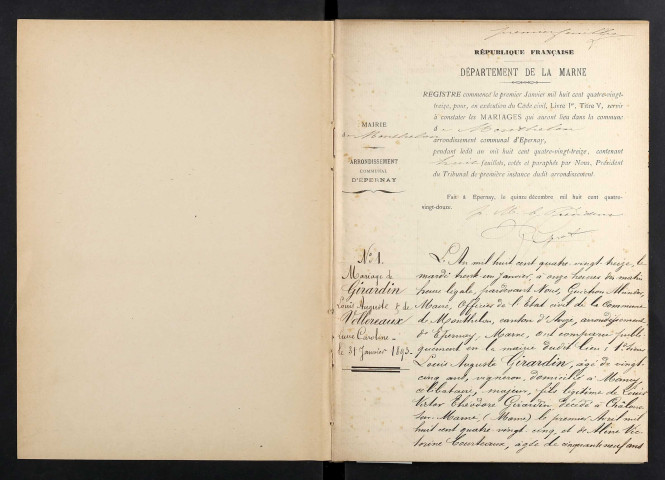 premier feuillet
RÉPUBLIQUE FRANÇAISE
DÉPARTEMENT DE LA MARNE
REGISTRE commencé le premier Janvier mil huit cent quatre-vingt-
treize, pour, en exécution du Code civil, Livre Ier, Titre V, servir
à constater les MARIAGES qui auront lieu dans la commune
d Monthelon
arrondissement communal d'Epernay,
pendant ledit an mil huit cent quatre-vingt-treize, contenant
huit feuillets, cotés et paraphés par Nous, Président
du Tribunal de première instance dudit arrondissement.
Fait à Epernay, le quinze décembre mil huit cent quatre-
vingt-douze.
p. M. le Président
MAIRIE
de Monthelon
ARRONDISSEMENT
COMMUNAL
D'ÉPERNAY
No 1.
Mariage de
Girardin
Louis Auguste & de
Vollereaux
Caroline
le 31 Janvier 1893.
L'An mil huit cent quatre vingt treize, le
mardi trente un Janvier, à onze heures du matin
heure légale, pardevant Nous, Guichon
Maire, Officier de l'Etat civil de la Commune
de Monthelon, canton d'Avize, arrondissement
d'Epernay, Marne, ont comparu publi
quement en la mairie dudit lieu : 1° Sieur
Louis Auguste Girardin, âgé de vingt-
cinq ans, vigneron, domicilié à Mancy
célibataire, majeur, fils légitime de Louis
Victor Théodore Girardin, décédé à Châlons
sur Marne (Marne) le premier Avril mil
huit cent quatre vingt cinq, et de Aline Vic
torine Courteaux, âgée de cinquante neuf ans